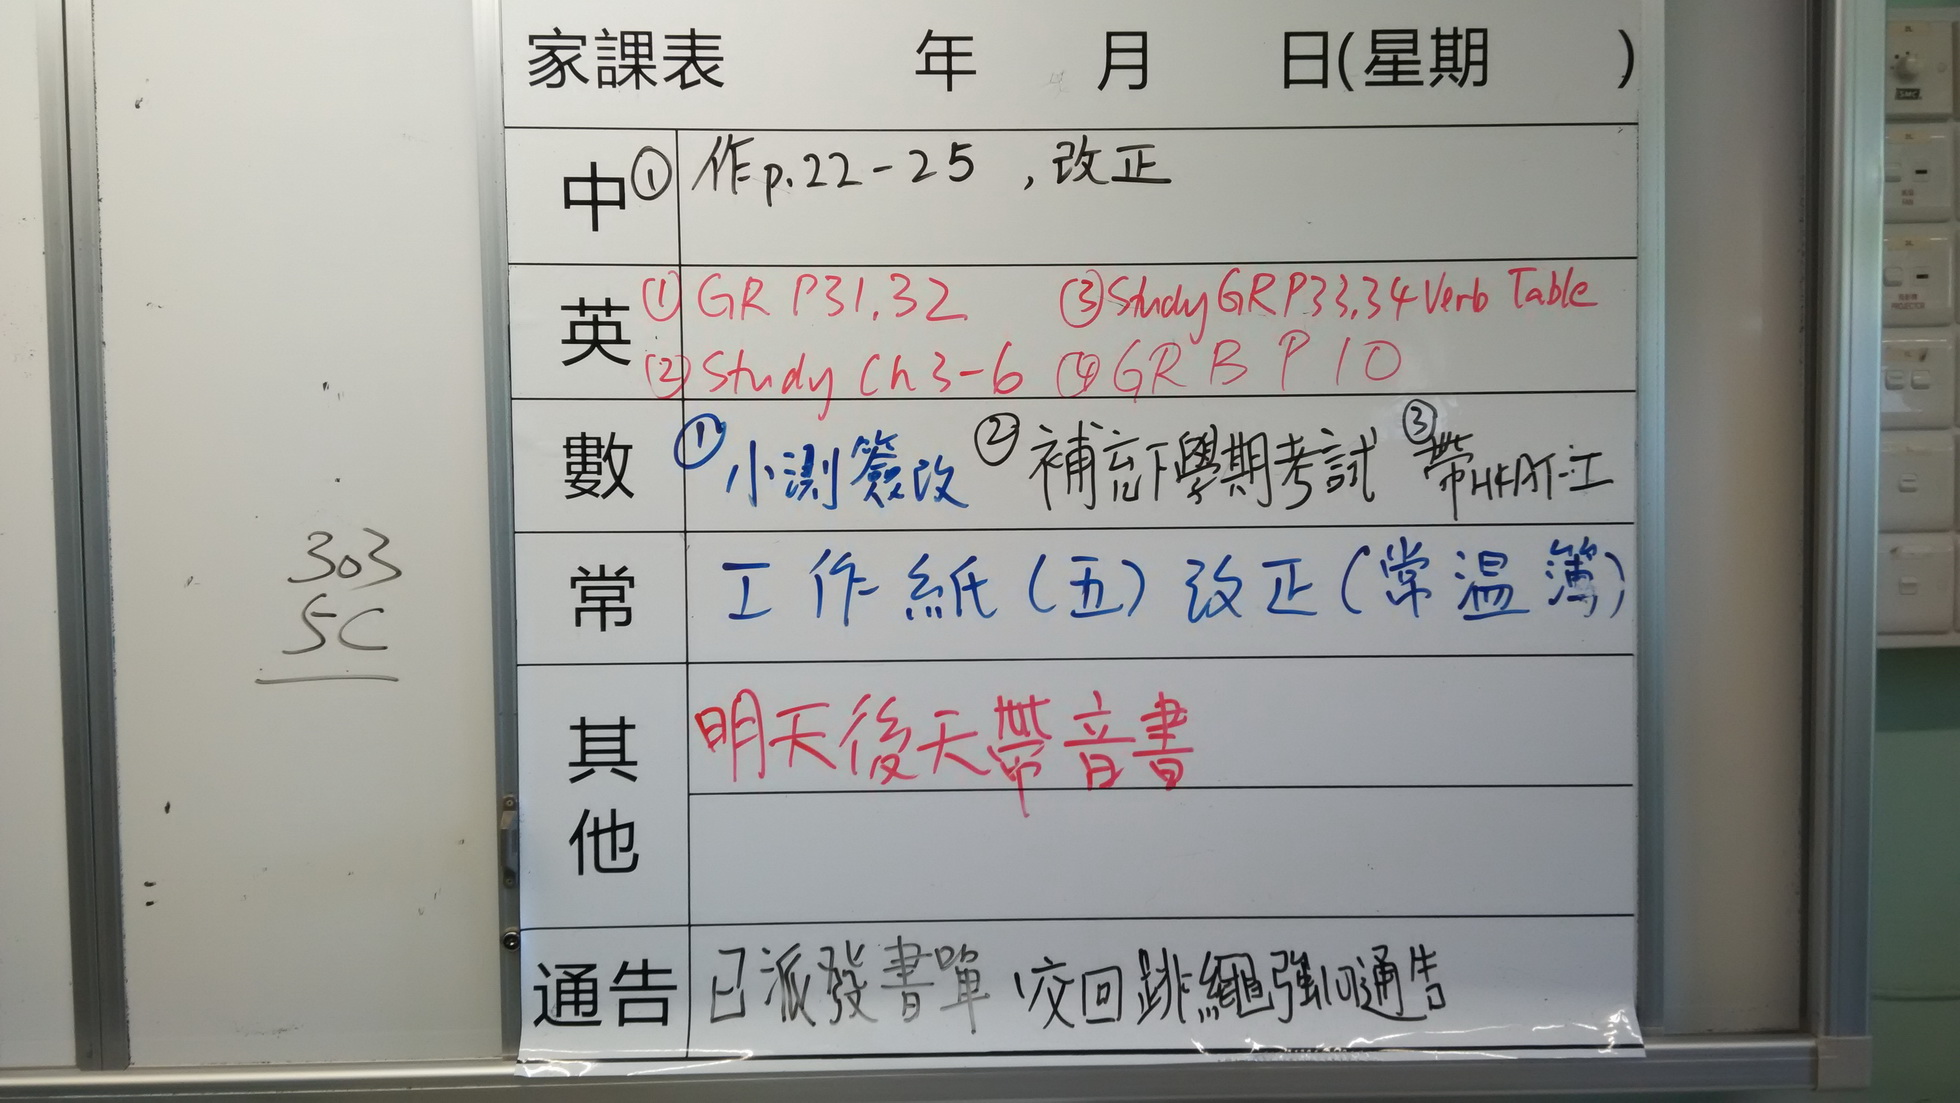 家課表 年 月 日(星期 )
中 ① 作p.22-25 ,改正
英 ① GR P31,32 ③Study GR P33,34 Verb Table
② Study Ch 3-6 ④ GR B P 10
數 ① 小測簽改 ② 補充下學期考試 ③ 帶HKAT-工
常 工作紙(五)改正(常温簿)
其他 明天後天帶音書
通告 已派發書單 交回跳繩強心通告
303
5C
SMC
PROJECTOR